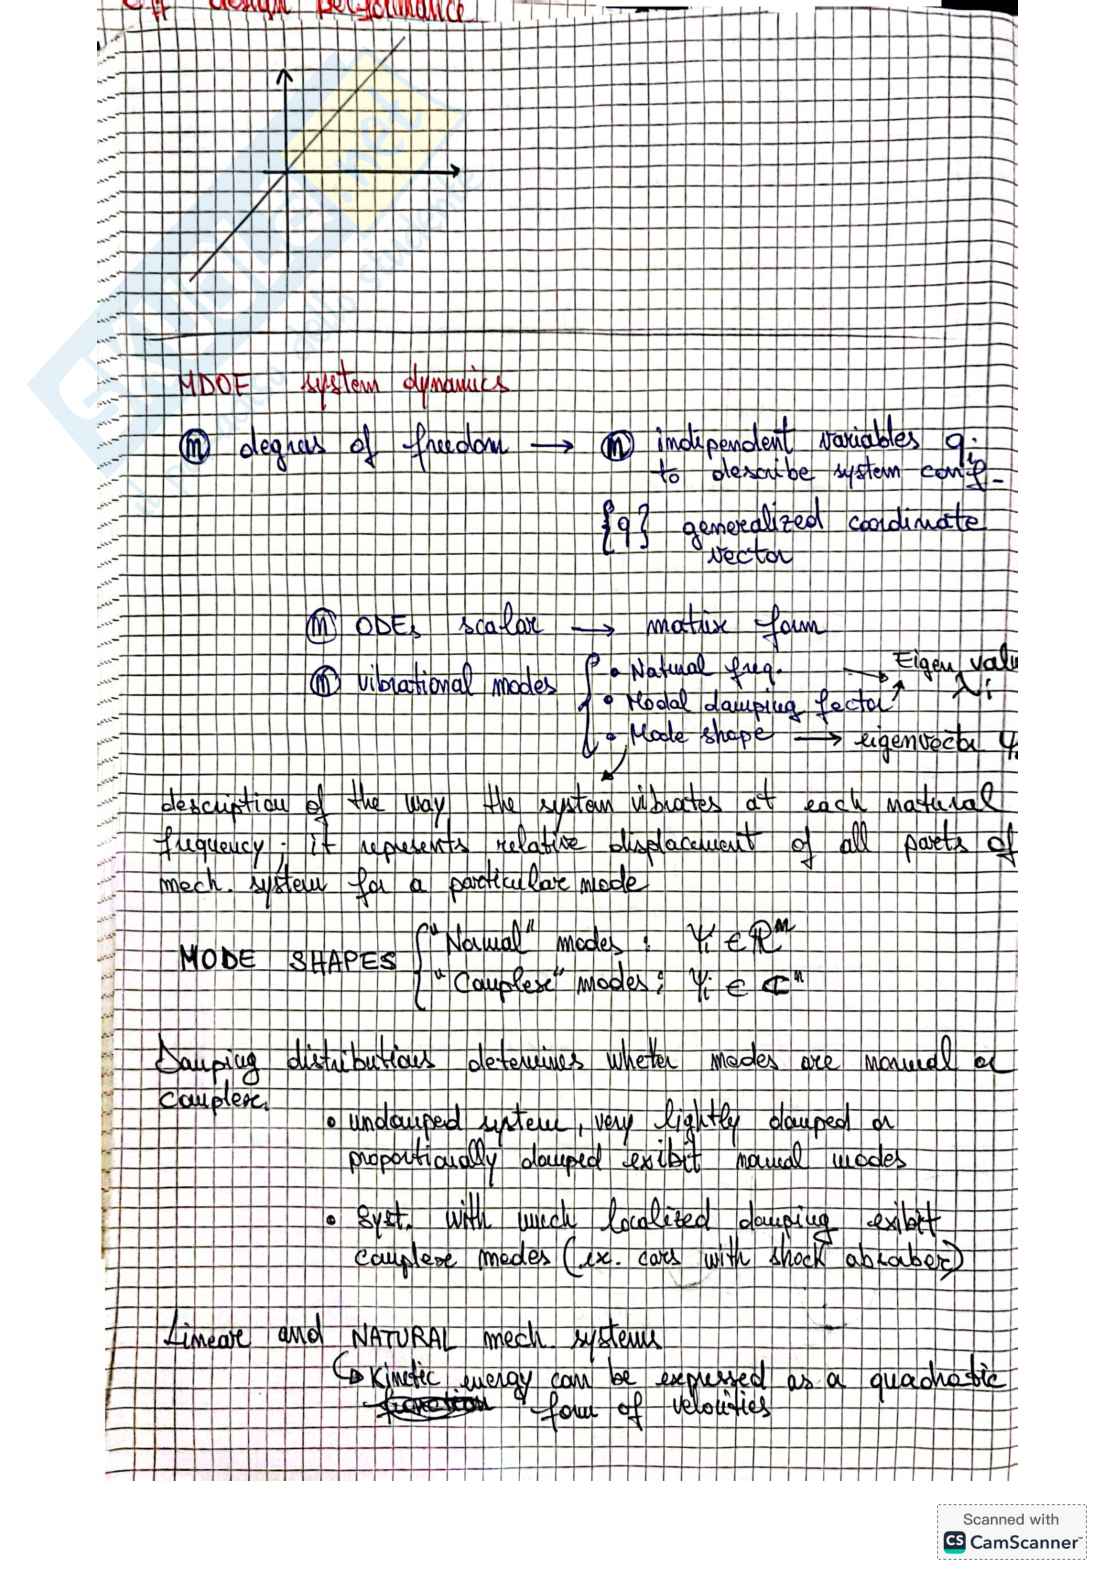 Off design performance
MDOF system dynamics
n degrees of freedom → n independent variables qi
to describe system conf.
{q} generalized coordinate
vector
n ODEs scalar → matrix form
n vibrational modes { • Natural freq. → Eigen valu
λi
• Modal damping factor
• Mode shape → eigenvector ψi
description of the way the system vibrates at each natural
frequency; it represents relative displacement of all parts of
mech. system for a particular mode
MODE SHAPES { "Normal" modes: ψi ∈ ℝⁿ
"Complex" modes: ψi ∈ ℂⁿ
Damping distributions determines wheter modes are normal or
complex.
• undamped system, very lightly damped or
proportionally damped exibit normal modes
• Syst. with much localized damping exibit
complex modes (ex. cars with shock absorber)
Linear and NATURAL mech. systems
↳ Kinetic energy can be expressed as a quadratic
form of velocities
Scanned with
CS CamScanner